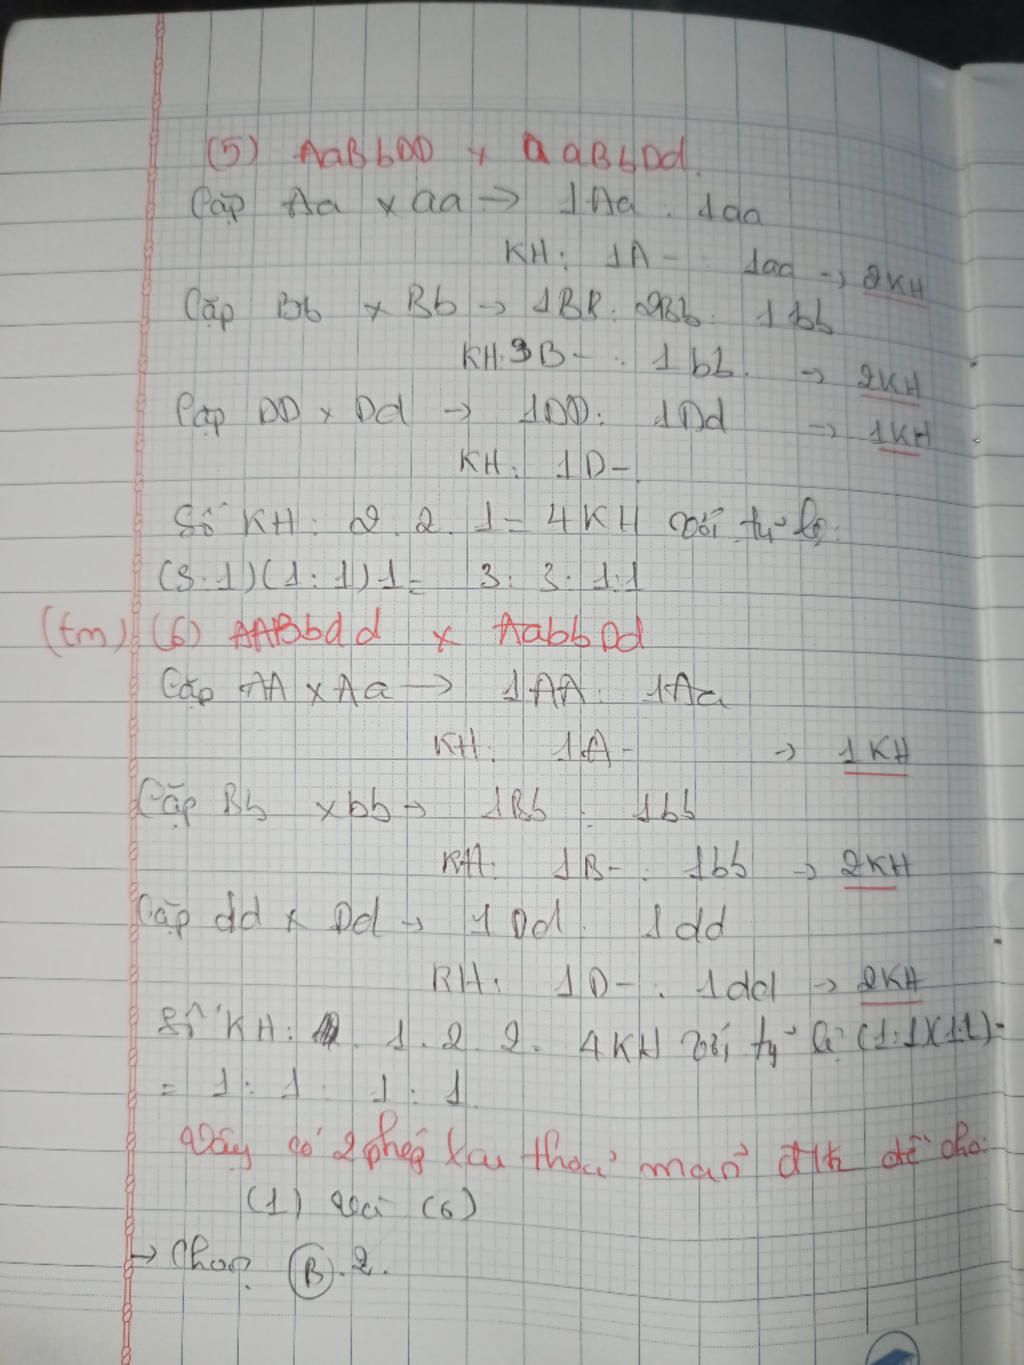 (5) AaBbDD x aaBbDd.
Cặp Aa x aa → 1Aa : 1aa
KH: 1A- : 1aa → 2KH
Cặp Bb x Bb → 1BB : 2Bb : 1bb
KH: 3B- : 1bb. → 2KH
Cặp DD x Dd → 1DD : 1Dd → 1KH
KH: 1D-
Số KH: 2. 2. 1 = 4KH với tỷ lệ:
(3:1)(1:1)1 = 3: 3: 1:1
(tm) (6) AABbdd x AabbDd
Cặp AA x Aa → 1AA : 1Aa
KH: 1A- → 1KH
Cặp Bb x bb → 1Bb : 1bb
KH: 1B- : 1bb → 2KH
Cặp dd x Dd → 1Dd : 1dd
KH: 1D- : 1dd → 2KH
Số KH: 1. 2. 2. 4KH với tỷ lệ (1:1)(1:1)=
= 1: 1 : 1 : 1.
Vậy có 2 phép lai thoả mãn đk đề cho:
(1) và (6)
→ Chọn B. 2.